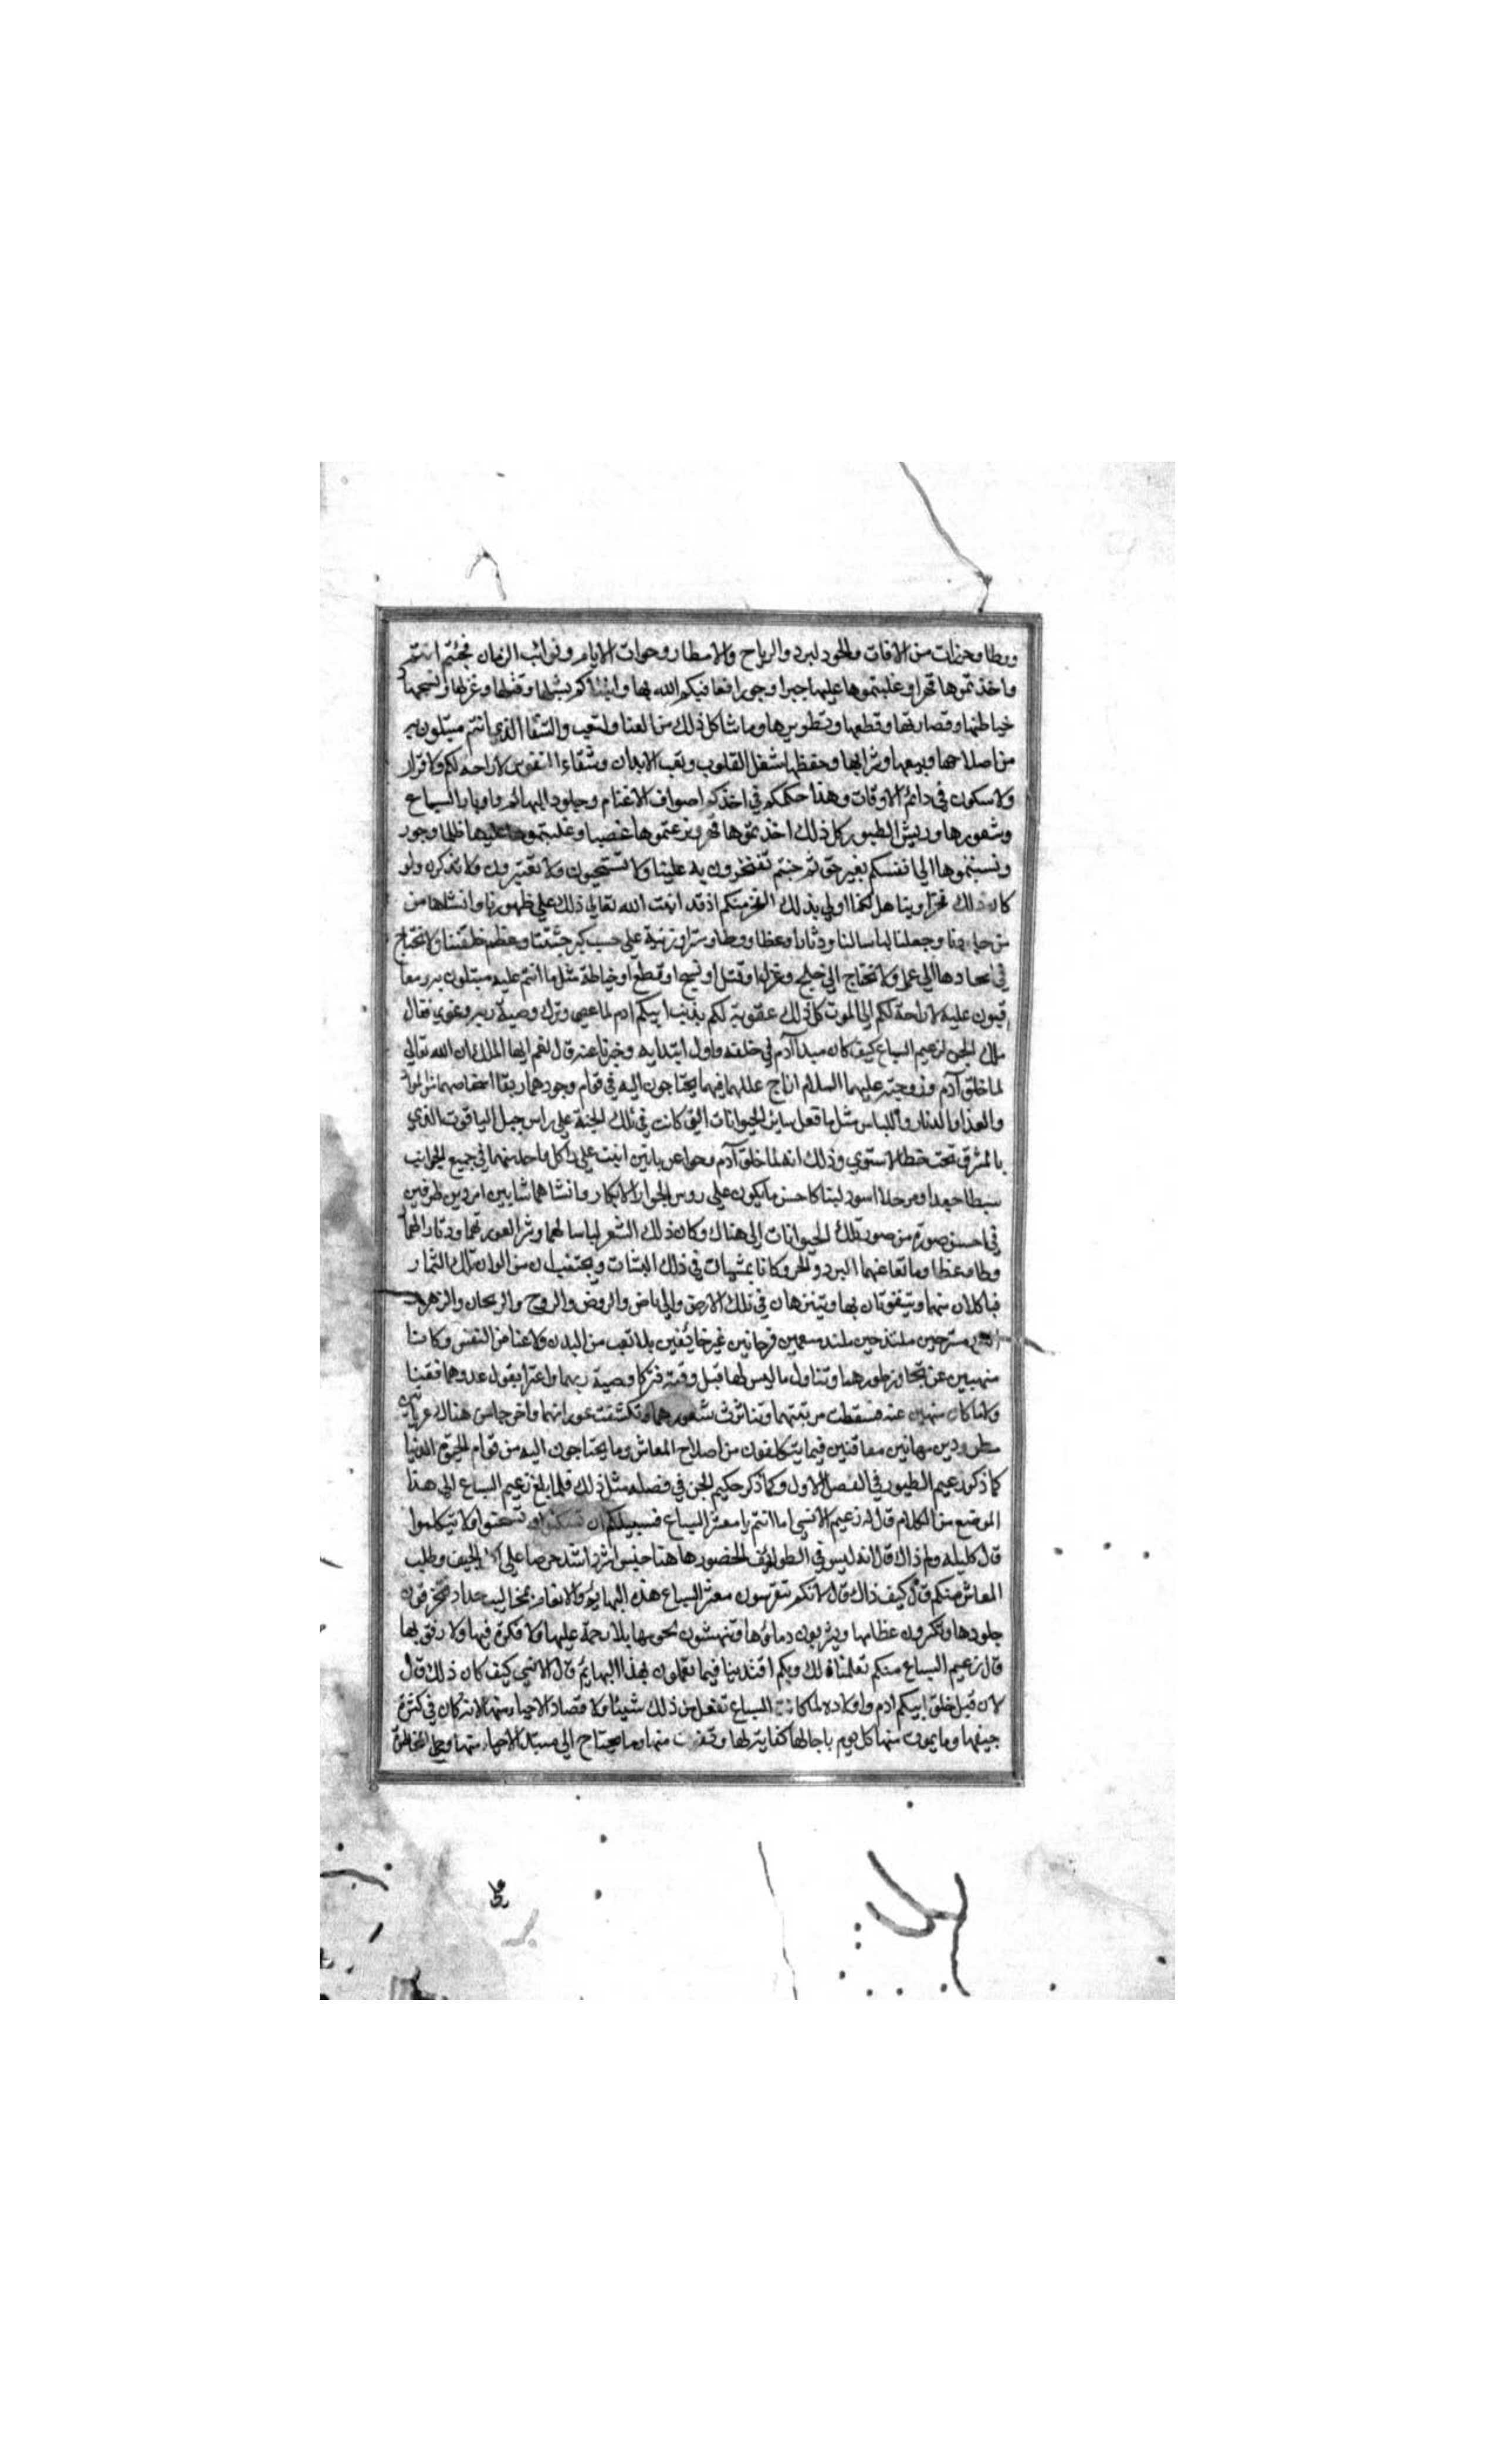 ووطا وحرزات من الافات والحر والبرد والرياح والامطار وحوات الايام ونوائب الزمان فجئتم انتم
واخذتموها قهرا وغلبتموها عليها جبرا وجورا فعاقبكم الله بها وابتلاكم بشيلها وقتلها وغزلها ونسجها و
خياطتها وقصارتها وقطعها وتطويرها وما شاكل ذلك من العنا والتعب والشقا الذي انتم مبتلون به
من اصلاحها وبيعها وشرايها وحفظها شغل القلوب وتعب الابدان وشقاء النفوس لا راحة لكم ولا قرار
ولا سكون في دائم الاوقات وهذا حكمكم في اخذكم اصواف الاغنام وجلود البهائم واوبار السباع
وشعورها وريش الطيور كل ذلك اخذتموها قهرا ونزعتموها غصبا وغلبتموها عليها ظلما وجور
ونسبتموها الي انفسكم بغير حق ثم جئتم تفتخرون به علينا ولا تستحيون ولا تعتبرون ولا تذكرون ولو
كان ذلك فخرا ويتاهل لكنا اولي بذلك الفخر منكم اذ قد انبت الله تعالي ذلك علي ظهورنا وانشاها من
من جلودنا وجعلنا لباسا لنا ودثارا وغطا ووطا وسترا وزينة علي حسب كبر جثتنا وعظم خلقتنا ولا نحتاج
في اتخاذها الي عمل ولا نحتاج الي حلج وغزل او قتل او نسج او قطع او خياطة مثل ما انتم عليه مبتلون به ومعا
قبون عليه لا راحة لكم الي الموت كل ذلك عقوبة لكم بذنب ابيكم ادم لما عصي وترك وصية ربه وغوي فقال
ملك الجن لزعيم السباع كيف كان مبدا آدم في خلقه واول ابتدايه وخبرنا عنه قال نعم ايها الملك ان الله تعالي
لما خلق آدم وزوجته عليهما السلام ازاح عللهما فيما يحتاجون اليه في قوام وجودهما وبقا اشخاصهما من المواد
والغذا والدثار واللباس مثل ما فعل ساير الحيوانات التي كانت في تلك الجنة علي راس جبل الياقوت الذي
بالمشرق تحت خط الاستوي وذلك انه لما خلق آدم وحوا عريانين انبت علي راس كل واحد منهما في جميع الجوانب
سبطا جعدا ومرجلا اسود لينا كاحسن ما يكون علي روس الجوار الابكار وانشاهما شابين امردين ظرفين
في احسن صورة من صور تلك الحيوانات التي هناك وكان ذلك الشعر لباسا لهما وسترا لعورتهما ودثارا لهما
وطا وغطا ومانعا عنهما البرد والحر وكانا يمشيان في ذلك البستان ويجتنيان من الوان تلك الثمار
فياكلان منها ويتفوتان بها ويتنزهان في تلك الارض والرياض والروض والروح والريحان والزهر
مستريحين ملتذين منعمين فرحانين غير خايفين بلا تعب من البدن ولا عنا من النفس وكانا
منهيين عن تجاوز طورهما وتناول ما ليس لهما قبل وقته فتركا وصية ربهما واغترا بقول عدوهما فقنا
ولا ما كانا منهيين عنه فسقطت مرتبتهما وتناثرت شعورهما وتكشفت عوراتهما واخرجا من هناك عريانين
مطرودين مهانين معاقبين فيما يتكلفون من اصلاح المعاش وما يحتاجون اليه من قوام الحيوة الدنيا
كما ذكر زعيم الطيور في الفصل الاول وكما ذكر حكيم الجن في فصله مثل ذلك فلما بلغ زعيم السباع الي هذا
الموضع من الكلام قال له زعيم الانسي اما انتم يا معشر السباع فسبيلكم ان تسكتوا وتستحيوا ولا تتكلموا
قال كليله ولم ذاك قال لانه ليس في الطوائف الحضور هاهنا جنس اشر واشد حرصا علي اكل الجيف وطلب
المعاش منكم قال كيف ذاك قال لانكم تفرسون معشر السباع هذه البهائم والانعام بمخاليب حداد فتخرقون
جلودها وتكسرون عظامها وتشربون دماؤها وتنهشون لحومها بلا رحمة عليها ولا فكرة فيها ولا رفق بها
قال زعيم السباع منكم تعلمنا ذلك وبكم اقتدينا فيما تعملون بهذا البهايم قال الانسي كيف كان ذلك قال
لان قبل خلق ابيكم ادم واولاده لما كانت السباع تفعل من ذلك شيئا ولا تصاد الاحياء منها لانه كان في كثرة
جيفها وما يموت منها كل يوم باجالها كفاية لها وقوت منها وما يحتاج الي صيد الاحياء منها وحمل المخاطرة